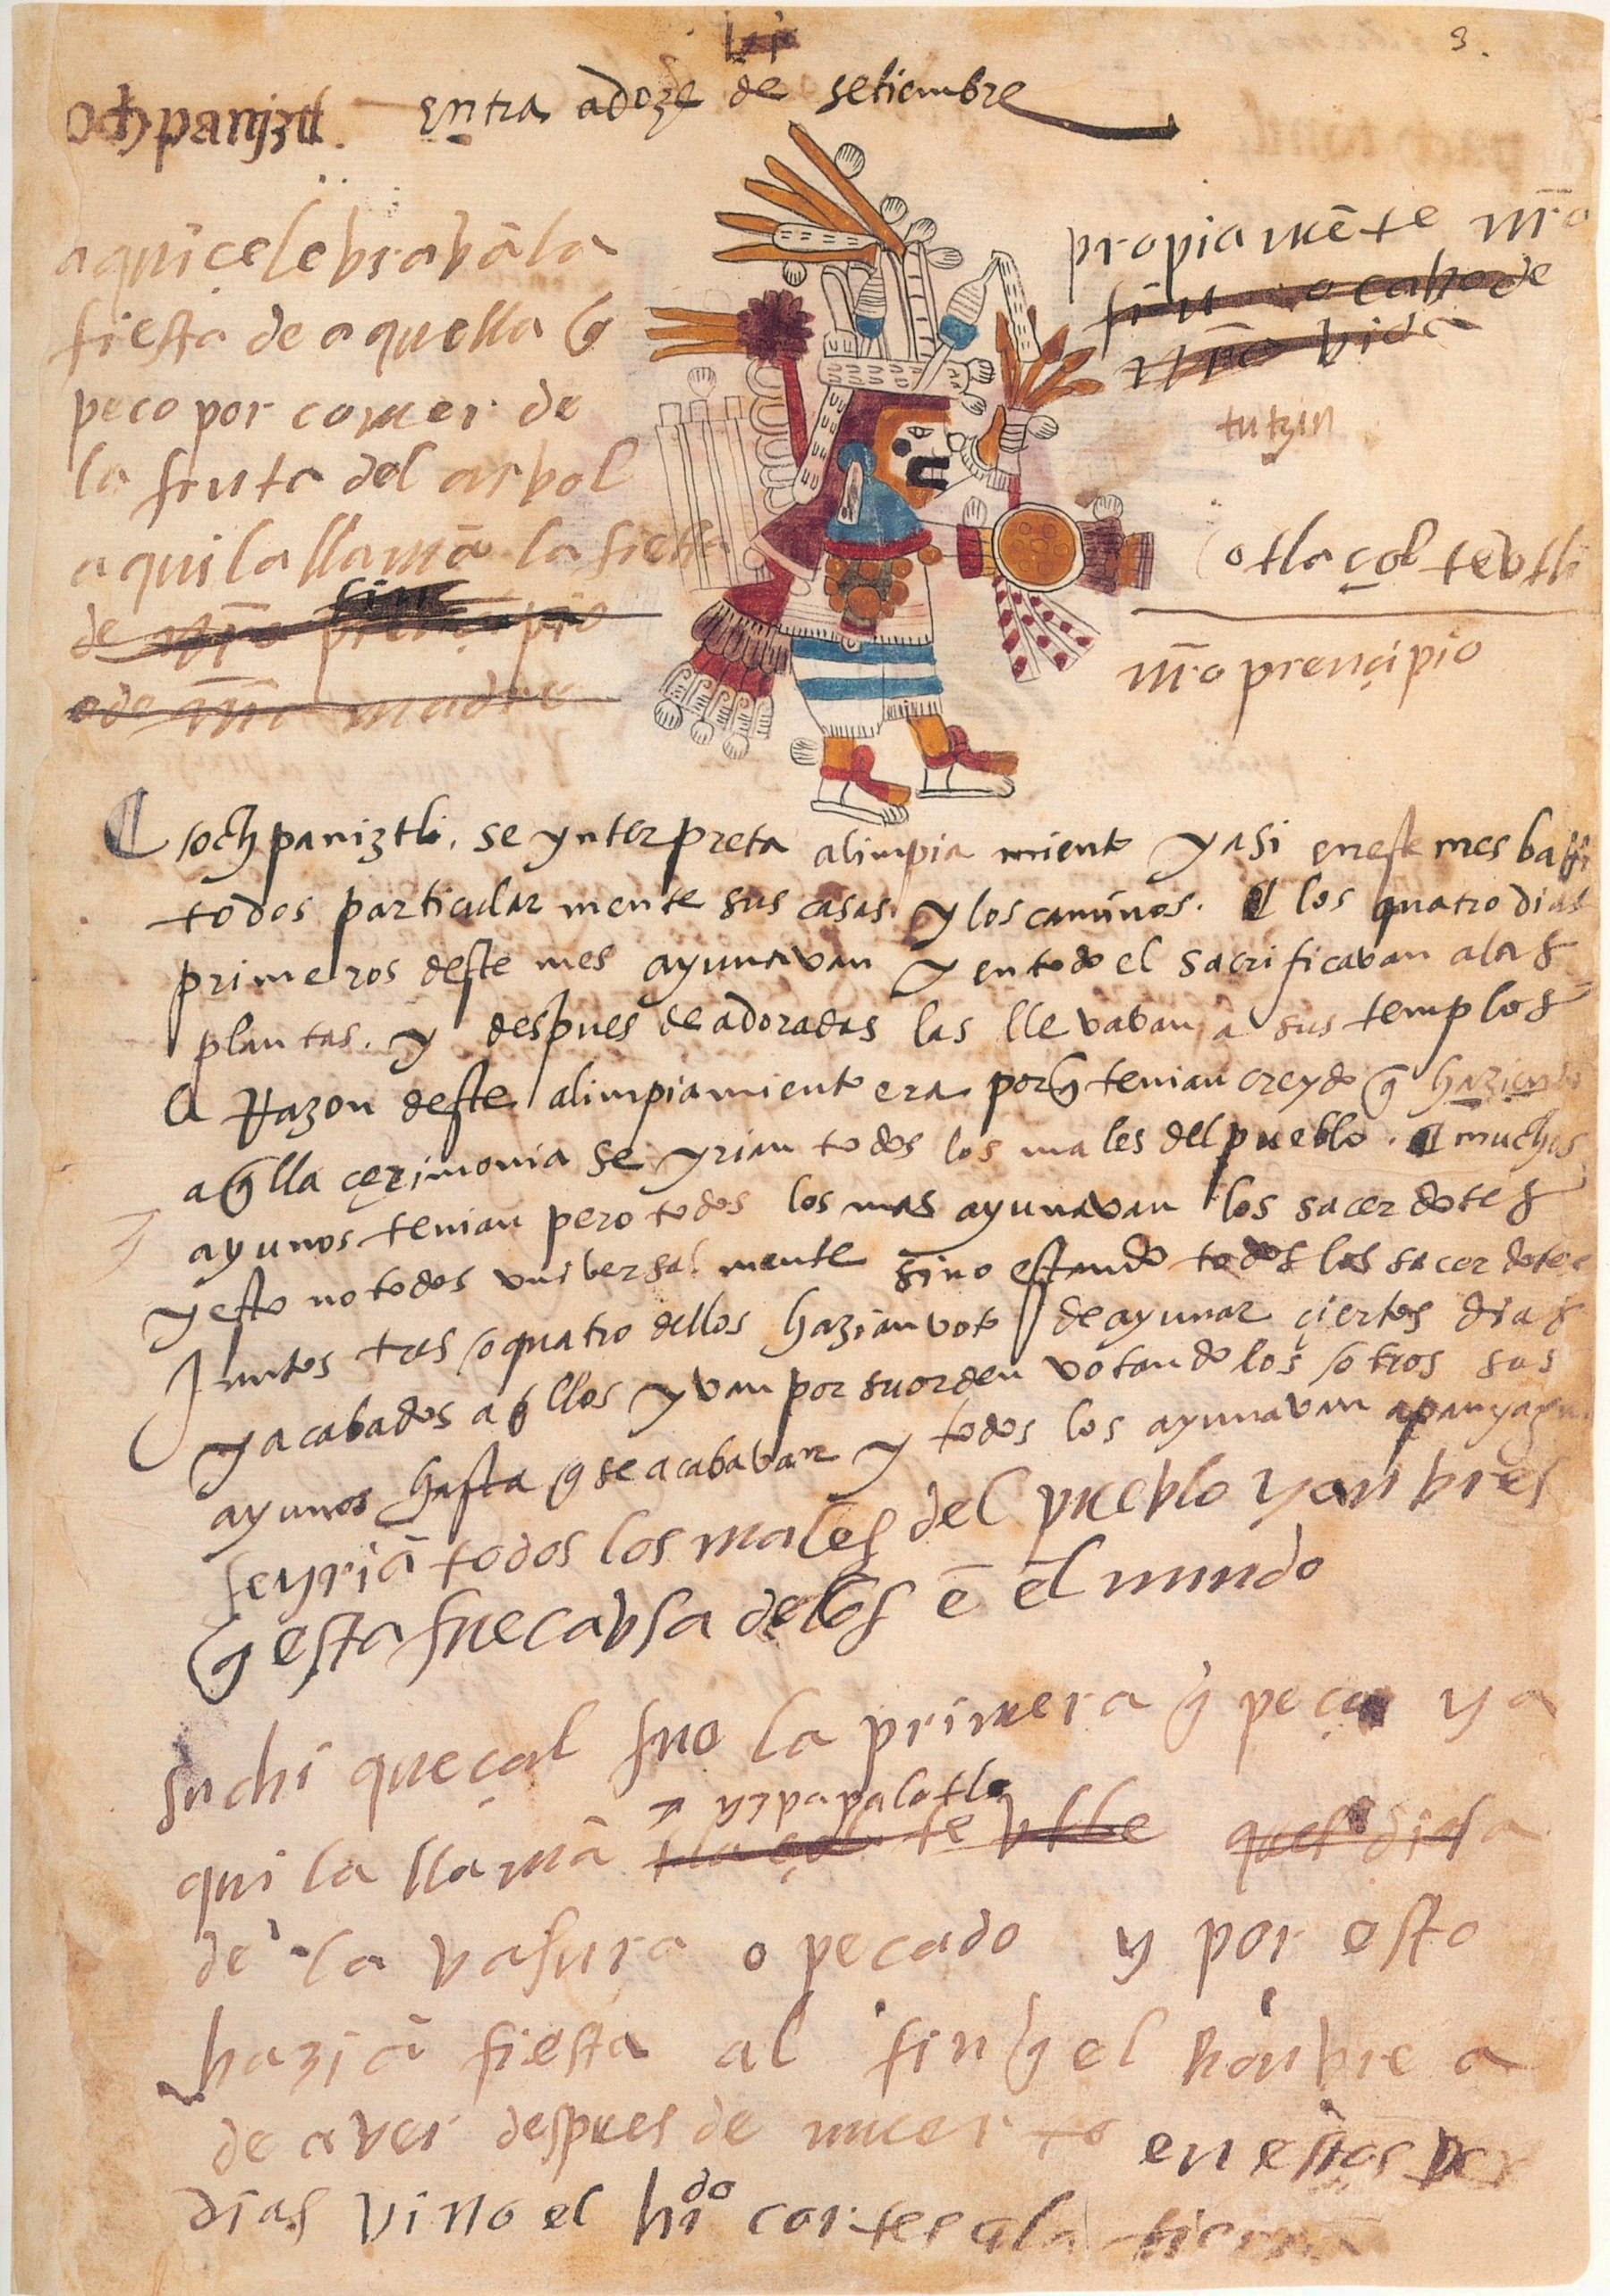 3.
ochpaniztli. entra adoze de setiembre
aqui çelebravā la
fiesta de aquella q̄
peco por comer de
la fruta del arbol
aqui la llamā la fiesta
de nr̄o prençipio
fin
o de nr̄a madre
propiamēte nr̄o
fin o cabo de
nr̄a vida
tutzin
o tlaçolteutli
nr̄o prençipio
ochpaniztli. se ynterpreta alimpiamiento y asi en este mes
todos particularmente sus casas y los caminos. los quatro dias
primeros deste mes ayunavan y en todo el sacrificavan a las
plantas. y despues de adoradas las llevavan a sus templos
la Razon deste alimpiamiento era porq̄ tenian creydo q̄ haziendo
aq̄lla çerimonia se yrian todos los males del pueblo. muchos
ayunos tenian pero todos los mas ayunavan los sacerdotes
y esto no todos vniversalmente sino estando todos los sacerdotes
Juntos tres o quatro dellos hazian voto de ayunar çiertos dias
y acabados aq̄llos yvan por su orden votando los otros sus
ayunos hasta q̄ se acabavan y todos los ayunavan
se yriā todos los males del pueblo
q̄ esta fue cavsa dellos ē el mundo
suchiqueçal fue la primera q̄ peco y a
qui la llamā tlaçolteutle la
y ypapalotle
de la vasura o pecado y por esto
haziā fiesta al fin q̄ el honbre a
de aver despues de muerto en estos
dias vino el hr̄do cortes a la tierra